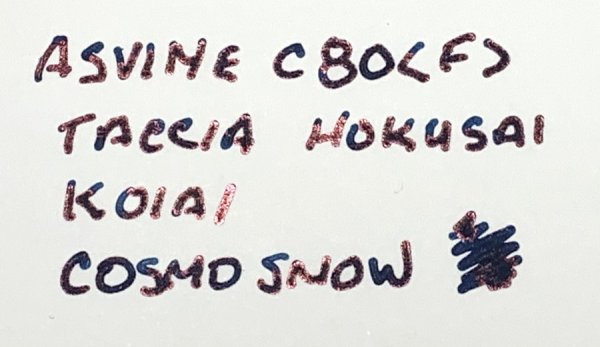 ASVINE C80<F>
TACCIA HOKUSAI
KOIAI
COSMO SNOW